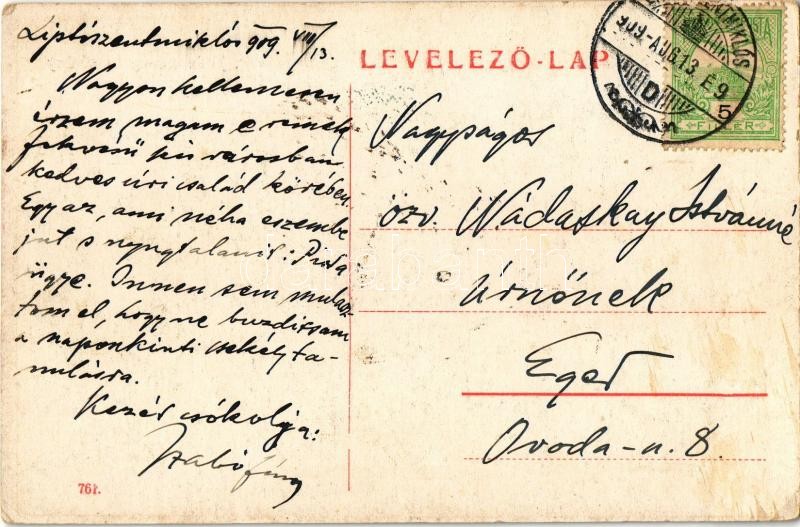 Liptószentmiklós 909. VIII/13.
Nagyon kellemesen
érzem magam e remek
fekvésű kis városban
kedves úri család körében.
Egy az, ami néha eszembe
jut s nyugtalanit:
ügye. Innen sem mulasz-
tom el, hogy ne buzditsam
a naponkinti csekély ta-
nulásra.
Kezét csókolja:
Szabó
761.
LEVELEZŐ-LAP
909-AUG 13. E 9
D
5
FILLÉR
Nagyságos
özv. Nádaskay Istvánné
Úrnőnek
Eger
Ovoda-u. 8.